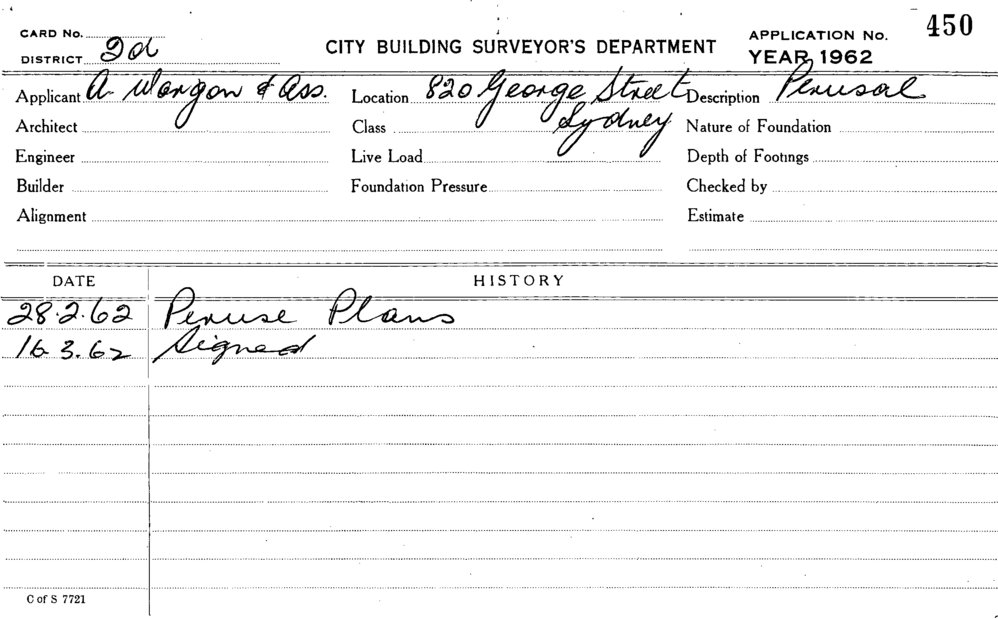 CARD No.
DISTRICT 2d
CITY BUILDING SURVEYOR'S DEPARTMENT
APPLICATION No. 450
YEAR 1962
Applicant A. Wargon & Ass. Location 820 George Street Sydney Description Perusal
Architect Class Nature of Foundation
Engineer Live Load Depth of Footings
Builder Foundation Pressure Checked by
Alignment Estimate
DATE HISTORY
28.2.62 Peruse Plans
16.3.62 Signed
C of S 7721